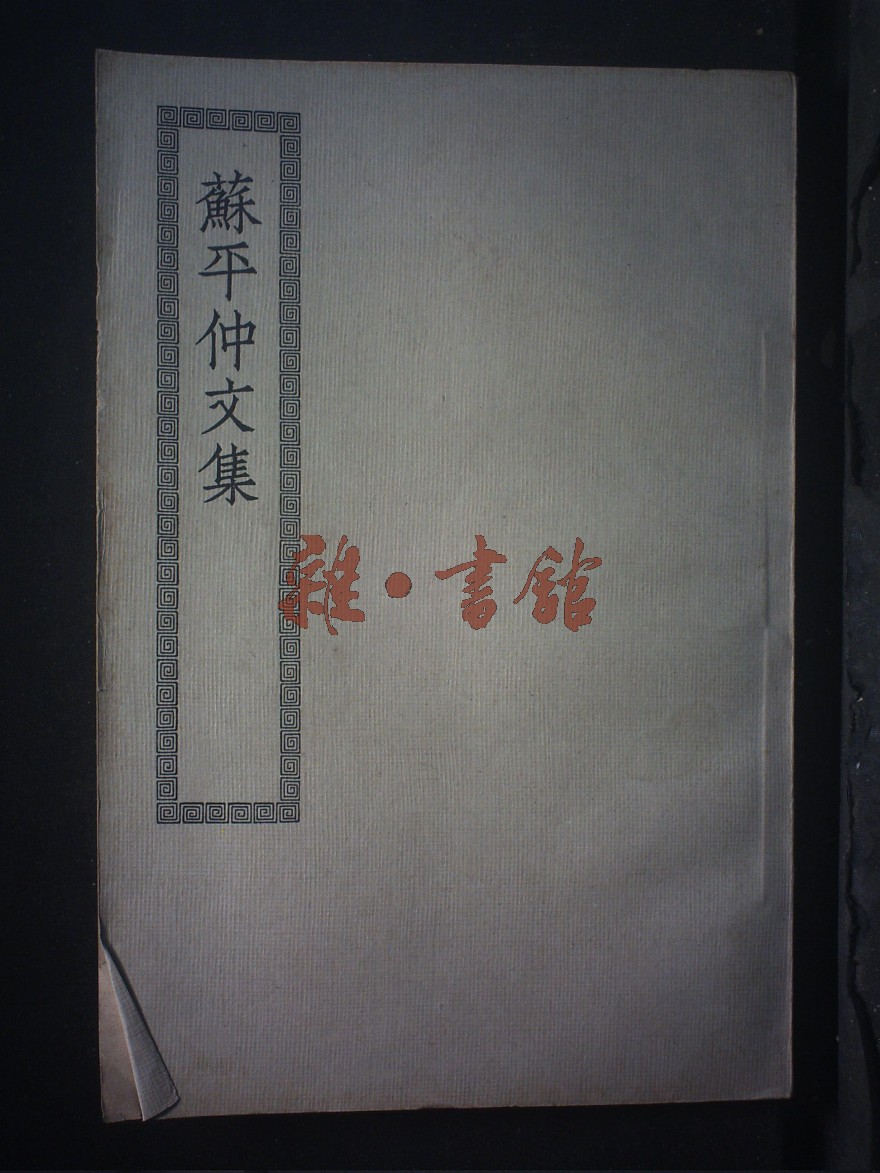 蘇平仲文集
雜·書館